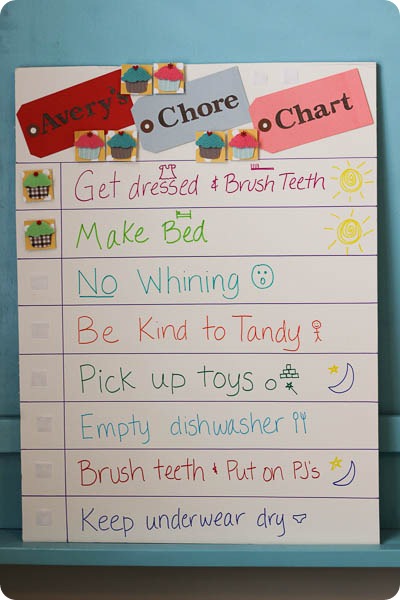 Avery's Chore Chart
Get dressed & Brush Teeth
Make Bed
No Whining
Be Kind to Tandy
Pick up toys
Empty dishwasher
Brush teeth & Put on PJ's
Keep underwear dry